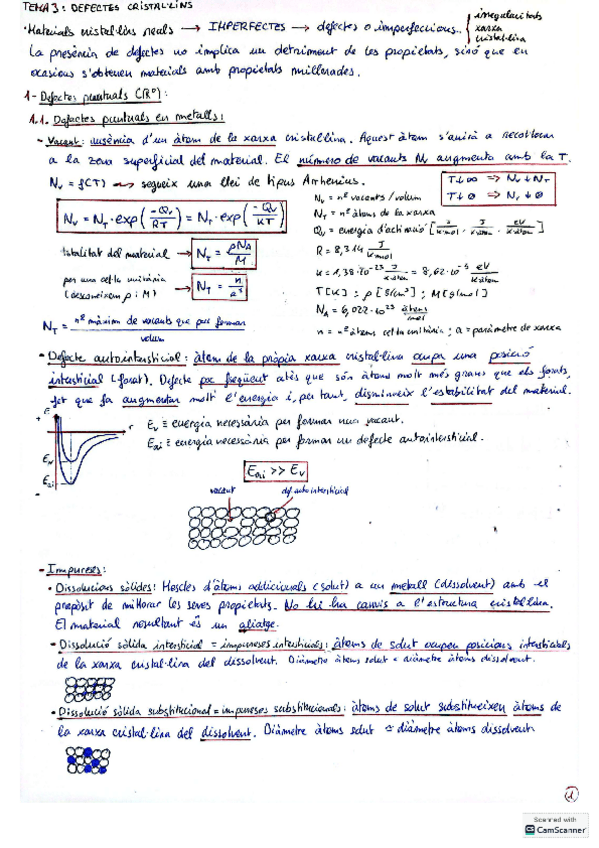 TEMA 3: DEFECTES CRISTAL·LINS
· Materials cristal·lins reals → IMPERFECTES → defectes o imperfeccions. irregularitats
xarxa
cristal·lina
La presència de defectes no implica un detriment de les propietats, sinó que en
ocasions s'obtenen materials amb propietats millorades.
1- Defectes puntuals (R⁰):
1.1. Defectes puntuals en metalls:
- Vacant: ausència d'un àtom de la xarxa cristal·lina. Aquest àtom s'anirà a recol·locar
a la zona superficial del material. El número de vacants Nv augmenta amb la T.
Nv = f(T) → segueix una llei de tipus Arrhenius.
T↓∞ ⇒ Nv↓NT
T↓0 ⇒ Nv↓0
Nv = NT · exp(-Qv/RT) = NT · exp(-Qv/KT)
Nv = nº vacants/volum
NT = nº àtoms de la xarxa
Qv = energia d'activació [J/mol, J/àtom, eV/àtom]
totalitat del material → NT = ρNA/M
R = 8,314 J/K·mol
k = 1,38·10⁻²³ J/K·àtom = 8,62·10⁻⁵ eV/K·àtom
per una cel·la unitària → NT = n/a³
(desconeixem ρ i M)
T[K] ; ρ[g/cm³] ; M[g/mol]
NA = 6,022·10²³ àtoms/mol
n = nº àtoms cel·la unitària ; a = paràmetre de xarxa
NT = nº màxim de vacants que puc formar / volum
- Defecte autointersticial: àtom de la pròpia xarxa cristal·lina ocupa una posició
intersticial (forat). Defecte poc freqüent atès que són àtoms molt més grans que els forats,
fet que fa augmentar molt l'energia i, per tant, disminueix l'estabilitat del material.
E
r
Ev
Eai
Ev ≡ energia necessària per formar una vacant.
Eai ≡ energia necessària per formar un defecte autointersticial.
Eai >> Ev
vacant def. autointersticial
- Impureses:
· Dissolucions sòlides: Mescles d'àtoms addicionals (solut) a un metall (dissolvent) amb el
propòsit de millorar les seves propietats. No hi ha canvis a l'estructura cristal·lina.
El material resultant és un aliatge.
· Dissolució sòlida intersticial = impureses intersticials: àtoms de solut ocupen posicions intersticials
de la xarxa cristal·lina del dissolvent. Diàmetre àtoms solut < diàmetre àtoms dissolvent.
· Dissolució sòlida substitucional = impureses substitucionals: àtoms de solut substitueixen àtoms de
la xarxa cristal·lina del dissolvent. Diàmetre àtoms solut ≃ diàmetre àtoms dissolvent
1
Scanned with
CS CamScanner